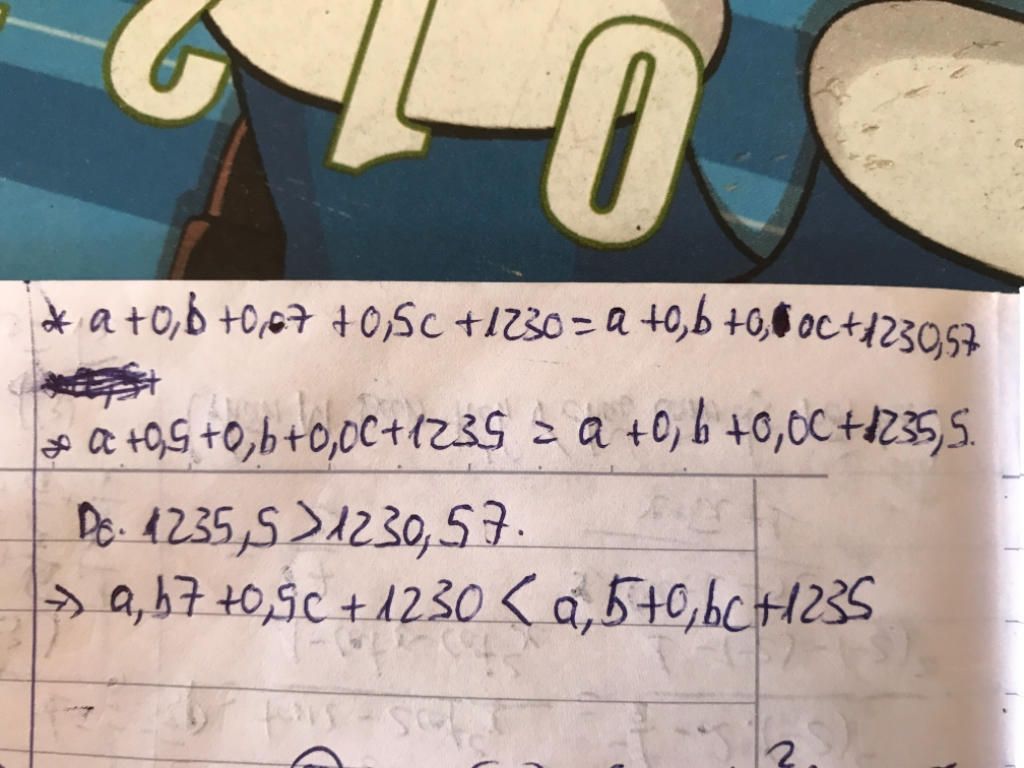 210
* a + 0,b + 0,07 + 0,5c + 1230 = a + 0,b + 0,0c + 1230,57
* a + 0,5 + 0,b + 0,0c + 1235 = a + 0,b + 0,0c + 1235,5.
Dc. 1235,5 > 1230,57.
=> a,b7 + 0,5c + 1230 < a,5 + 0,bc + 1235